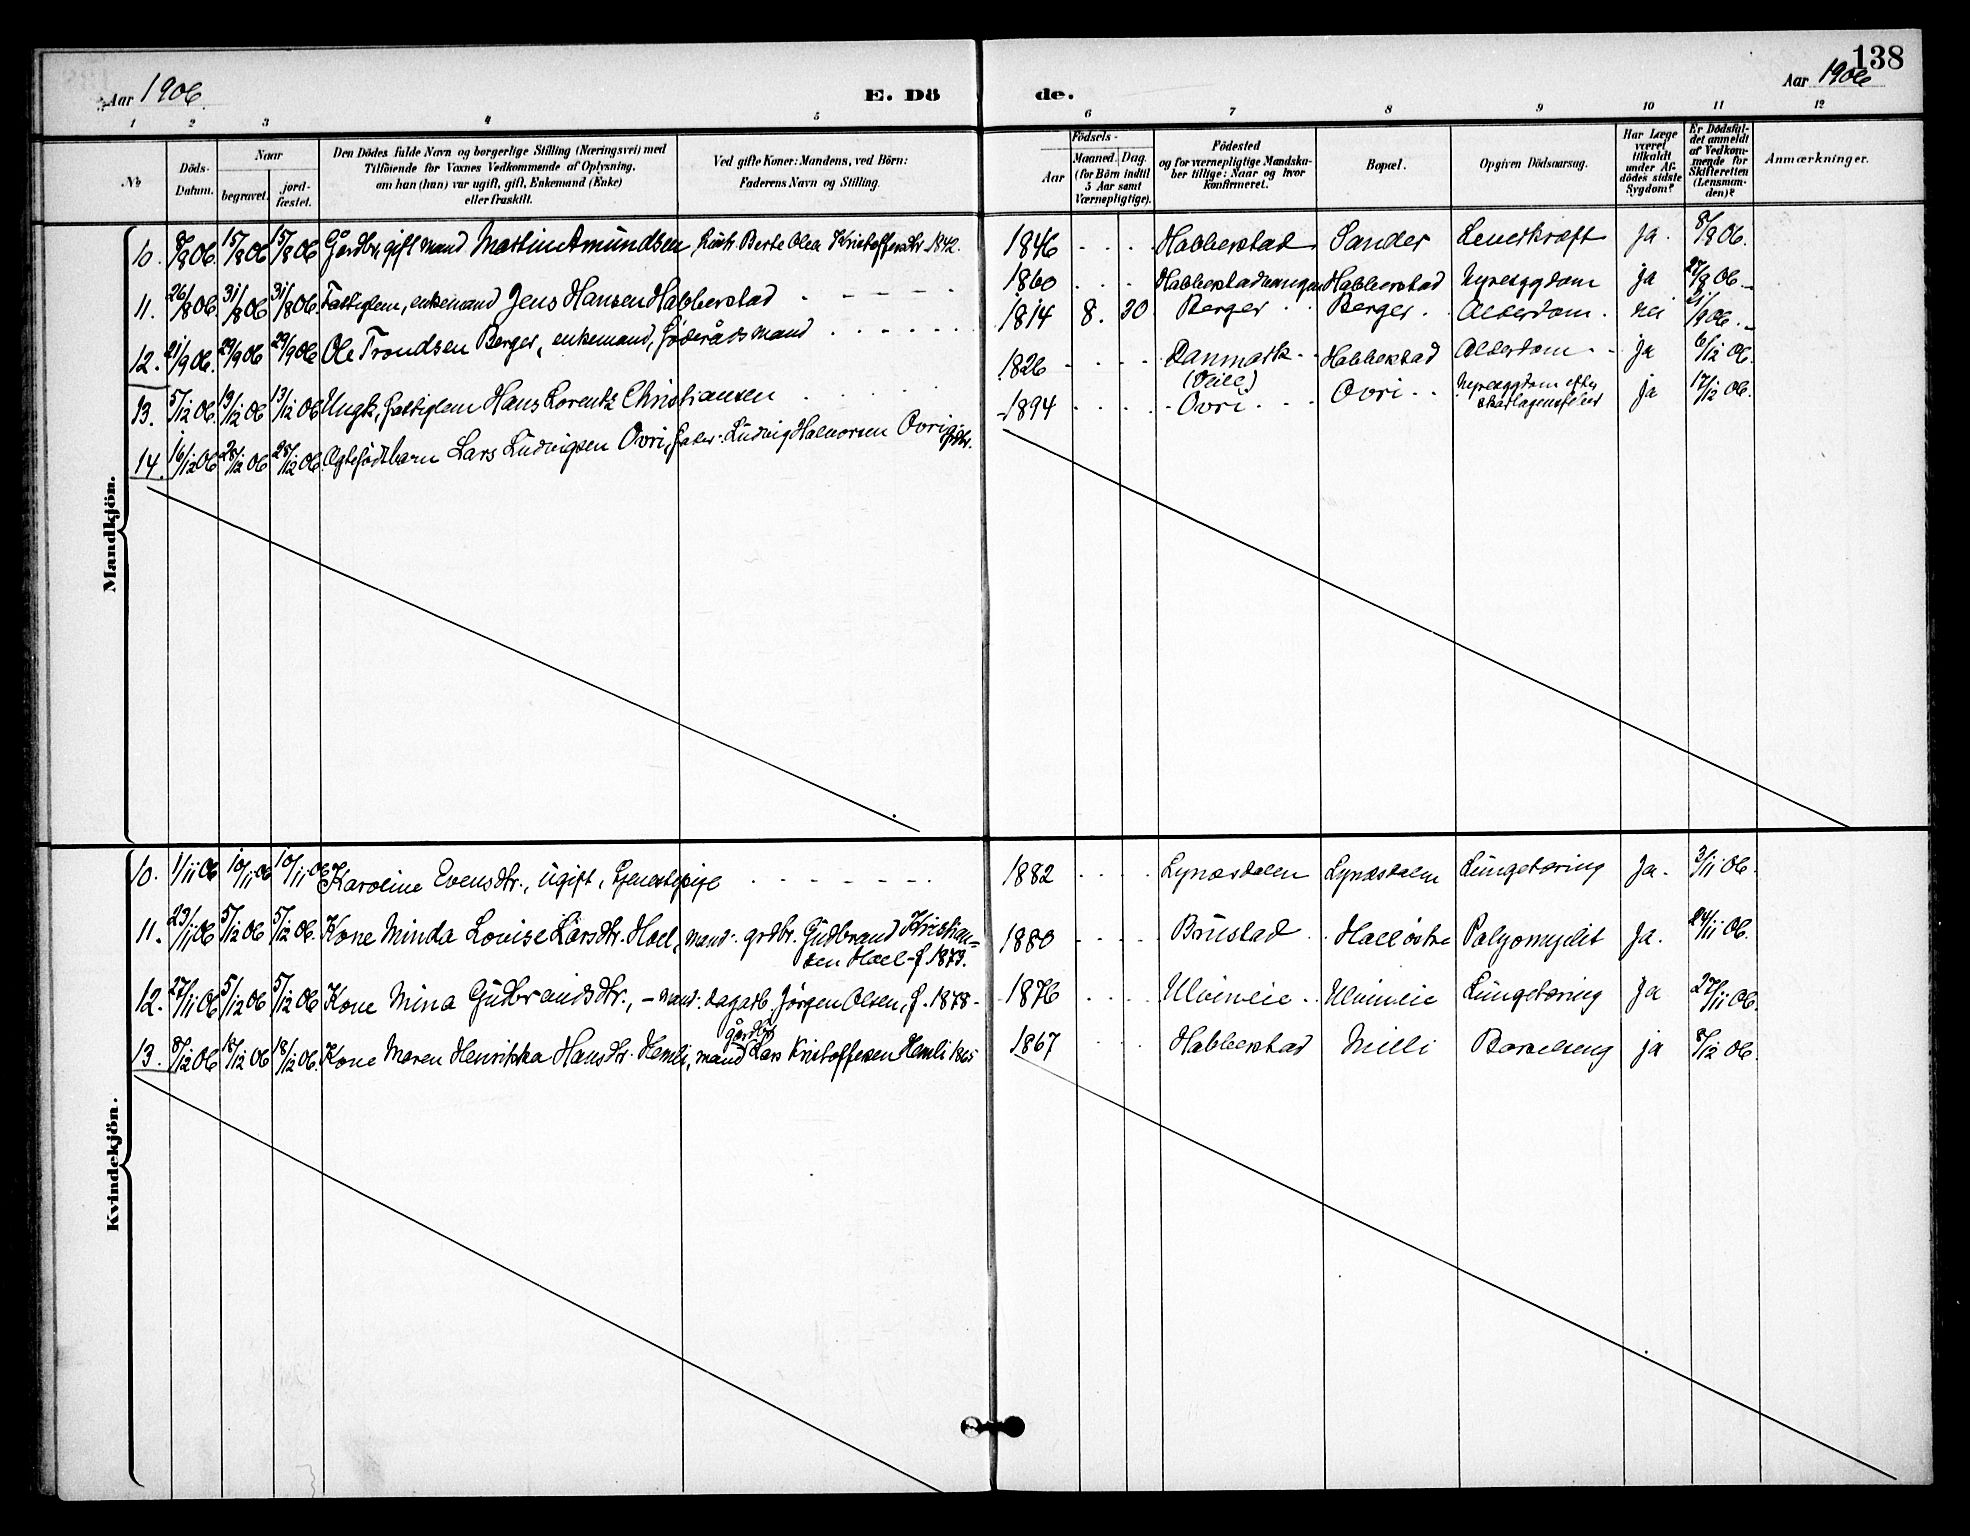 138
Aar 1906. E. Dö de. Aar 1906
1 2 3 4 5 6 7 8 9 10 11 12
No
Döds-Datum.
Naar
begravet. jord-fæstet.
Den Dödes fulde Navn og borgerlige Stilling (Næringsvei) med
Tilföiende for Voxnes Vedkommende af Oplysning,
om han (hun) var ugift, gift, Enkemand (Enke)
eller fraskilt.
Ved gifte Koner: Mandens, ved Börn:
Faderens Navn og Stilling.
Födsels-
Aar
Maaned. Dag.
(for Börn indtil
5 Aar samt
Værnepligtige).
Födested
og for værnepligtige Mandska-
ber tillige: Naar og hvor
konfirmeret.
Bopæl.
Opgiven Dödsaarsag.
Har Læge
været
tilkaldt
under Af-
dödes sidste
Sygdom?
Er Dödsfal-
det anmeldt
af Vedkom-
mende for
Skifteretten
(Lensman-
den)?
Anmærkninger.
Mandkjön.
10. 8/8 06. 15/8 06 15/8 06 Gårdbr, gift mand Martin Amundsen, hustr. Berte Olea Kristoffersdtr. 1842. 1846 - - - Habberstad Sander Leverkræft ja. 8/8 06.
11. 26/8 06. 31/8 06 31/8 06. Fattiglem, enkemand Jens Hansen Habberstad - - - - - 1860 - - - Habberstad Nyresygdom ja 27/8 06.
12. 21/9 06. 29/9 06 29/9 06 Ole Trondsen Berger, enkemand, föderådsmand - - - - - - 1814 8. 30 Berger Berger Alderdom. nei 21/9 06.
13. 5/12 06. 13/12 06 13/12 06 Ungk, fattiglem Hans Lorentz Christiansen 1826 - - - - Danmark (Veile) Habberstad Alderdom ja 6/12 06.
14. 16/12 06 28/12 06 28/12 06. Ægtefödt barn Lars Ludvigsen Ovri, fader: Ludvig Halvorsen Ovri, grdbr. 1894 - - - - Ovri - - - Ovri - - Nyresygdom efter skarlagensfeber ja 17/12 06.
Kvindekjön.
10. 1/11 06 10/11 06 10/11 06 Karoline Evensdtr., ugift, tjenestepige - - - - - - - 1882 - - - - Lynæsdalen Lynæsdalen Lungetæring Ja. 3/11 06.
11. 23/11 06 5/12 06 5/12 06. Kone Minda Lovise Larsdtr. Hoel, mand: grdbr. Gudbrand Kristian-
sen Hoel f. 1873. 1880 - - - - Brustad Hoel östre Polyomyelit Ja. 24/11 06.
12. 27/11 06 5/12 06 5/12 06 Kone Mina Gudbrandsdtr., - mand: dagarb. Jörgen Olsen, f. 1878 - 1876 - - - - Ulvineie Ulvineie Lungetæring Ja 27/11 06.
13. 8/12 06 18/12 06 18/12 06. Kone Maren Henrikka Hansdtr. Hemli, mand gårdbr Lars Kristoffersen Hemli 1865 1867 - - - Habberstad Milli Barselseng ja 8/12 06.